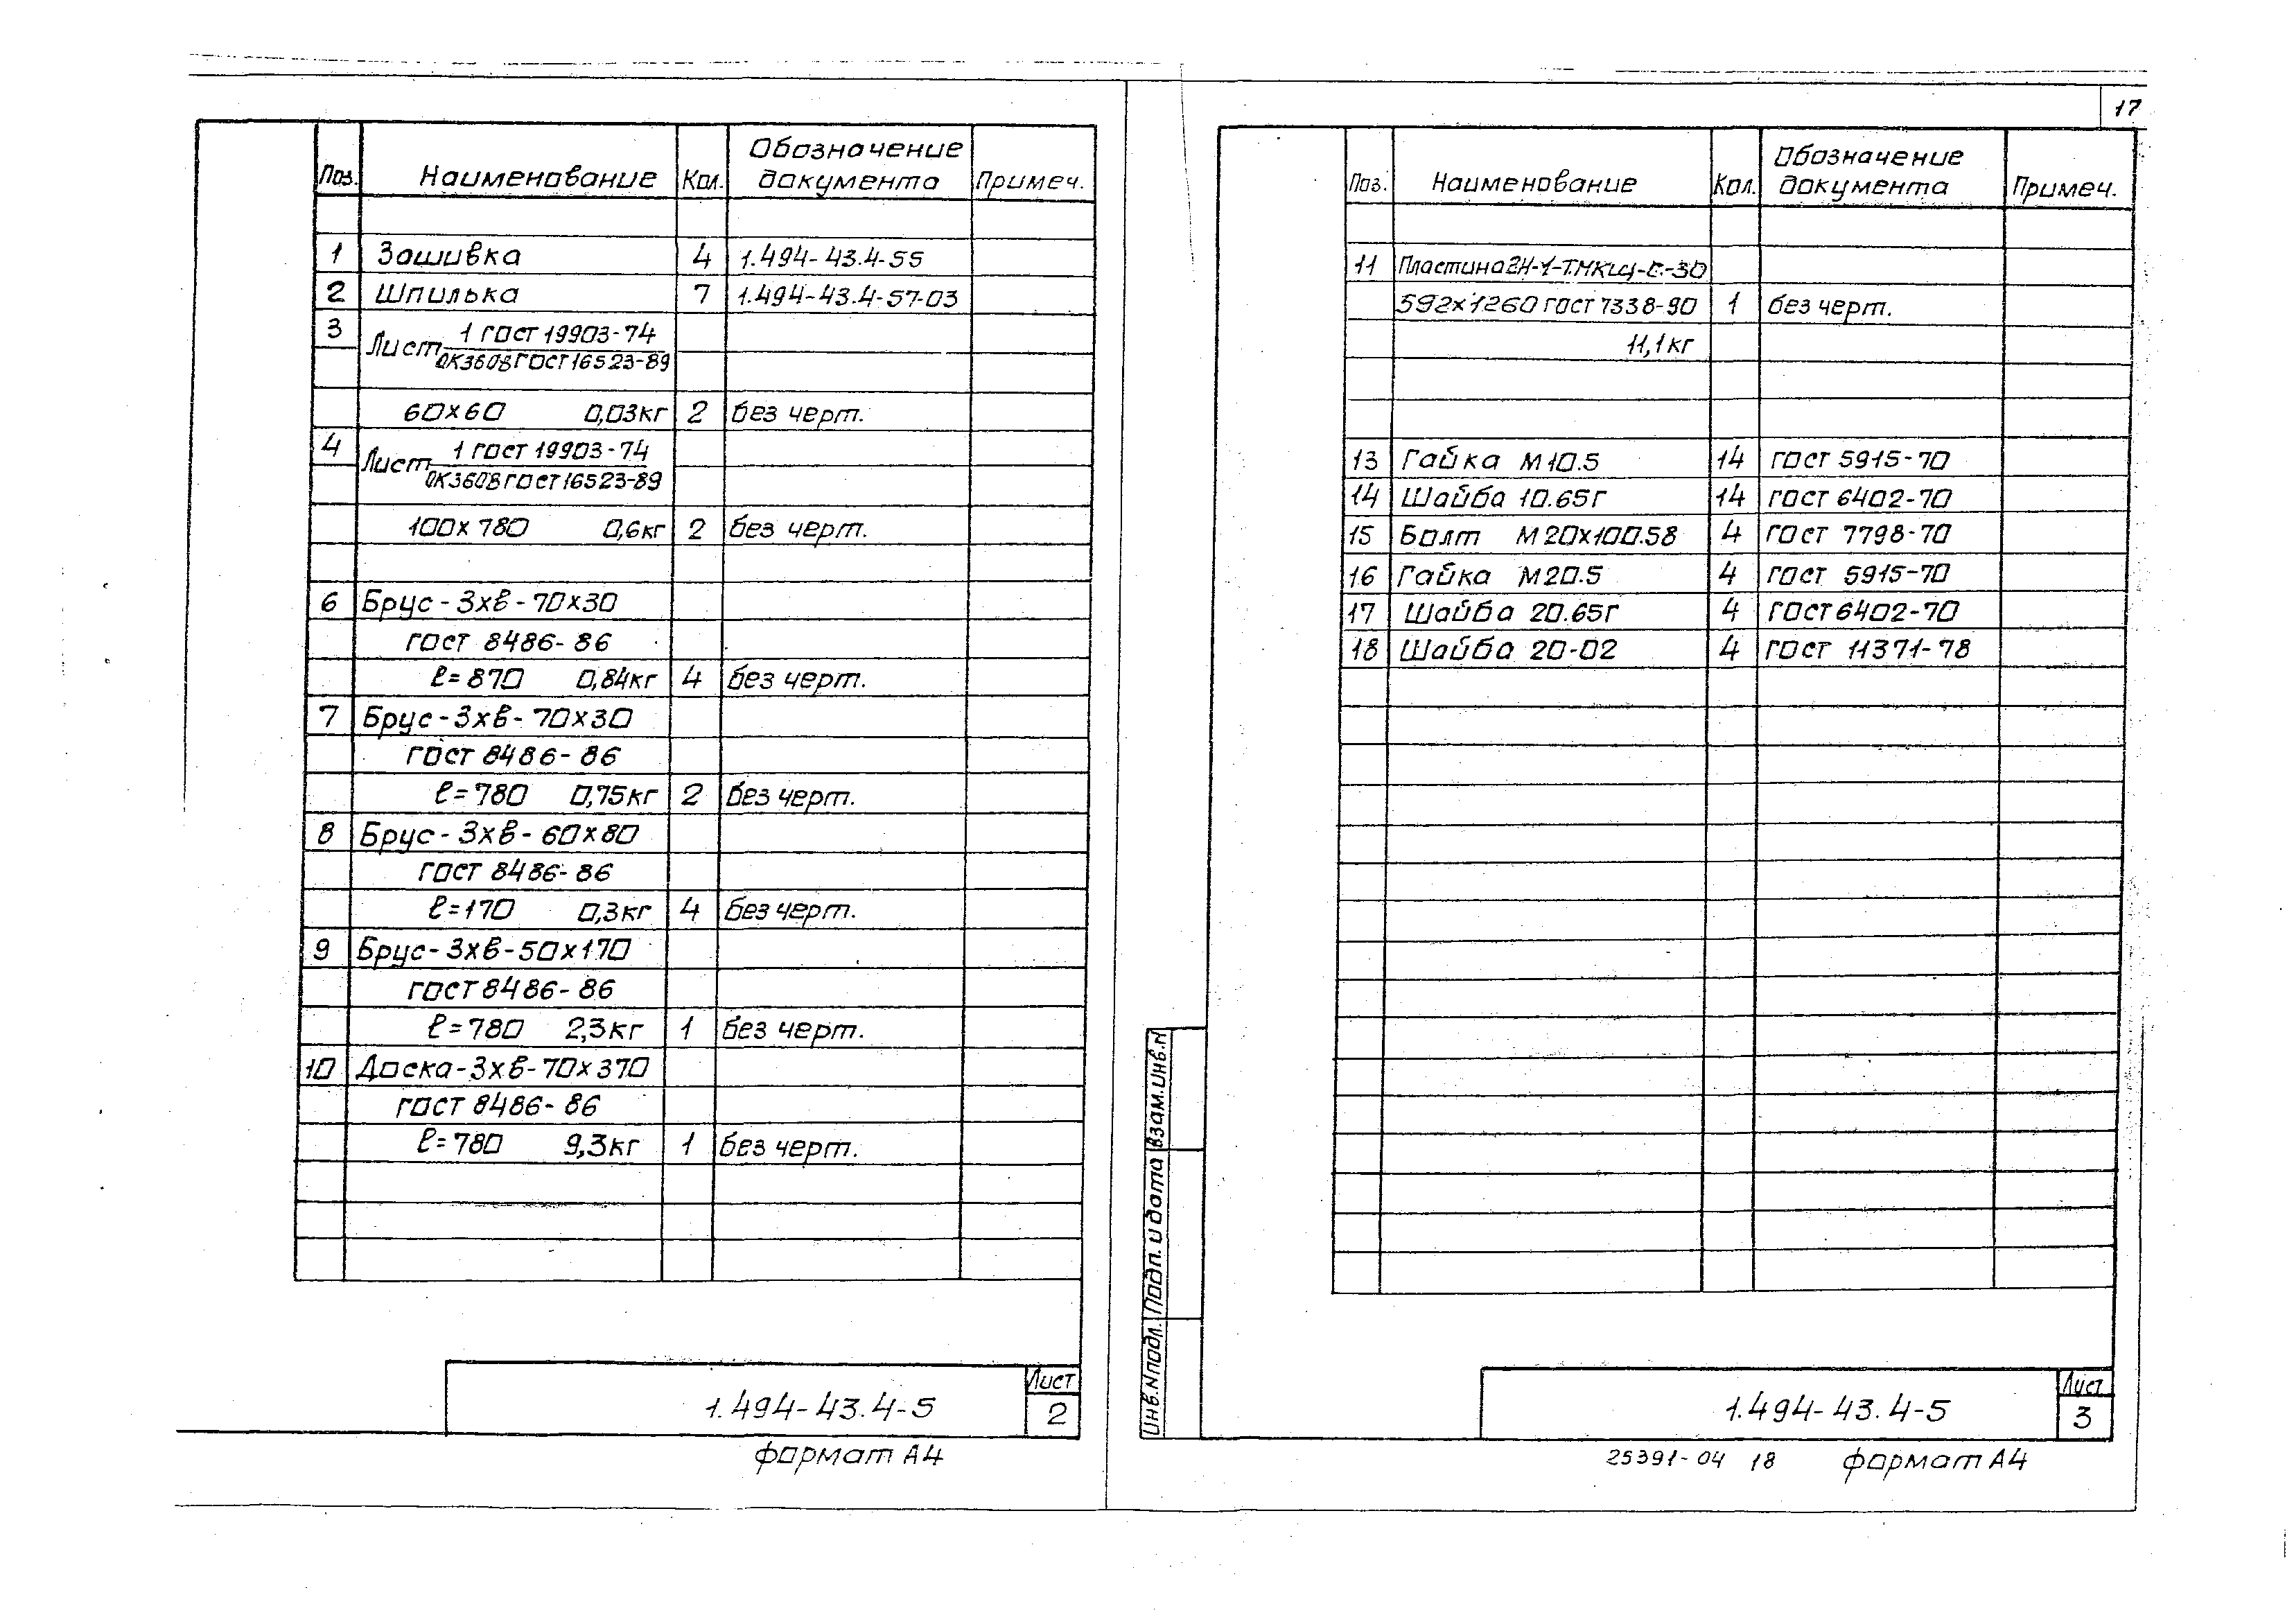 17
Поз. Наименование Кол. Обозначение документа Примеч.
1 Зашивка 4 1.494-43.4-55
2 Шпилька 7 1.494-43.4-57-03
3 Лист 1 ГОСТ 19903-74
ОК360В ГОСТ 16523-89
60х60 0,03кг 2 без черт.
4 Лист 1 ГОСТ 19903-74
ОК360В ГОСТ 16523-89
100х780 0,6кг 2 без черт.
6 Брус-3хв-70х30
ГОСТ 8486-86
ℓ=870 0,84кг 4 без черт.
7 Брус-3хв-70х30
ГОСТ 8486-86
ℓ=780 0,75кг 2 без черт.
8 Брус-3хв-60х80
ГОСТ 8486-86
ℓ=170 0,3кг 4 без черт.
9 Брус-3хв-50х170
ГОСТ 8486-86
ℓ=780 2,3кг 1 без черт.
10 Доска-3хв-70х370
ГОСТ 8486-86
ℓ=780 9,3кг 1 без черт.
1.494-43.4-5
Лист
2
формат А4
Поз. Наименование Кол. Обозначение документа Примеч.
11 Пластина 2Н-1-ТМКЩ-С-30
592х1260 ГОСТ 7338-90 1 без черт.
11,1кг
13 Гайка М10.5 14 ГОСТ 5915-70
14 Шайба 10.65Г 14 ГОСТ 6402-70
15 Болт М20х100.58 4 ГОСТ 7798-70
16 Гайка М20.5 4 ГОСТ 5915-70
17 Шайба 20.65Г 4 ГОСТ 6402-70
18 Шайба 20-02 4 ГОСТ 11371-78
Инв.Nподл. Подп. и дата Взам.инв.N
1.494-43.4-5
Лист
3
25391-04 18 формат А4